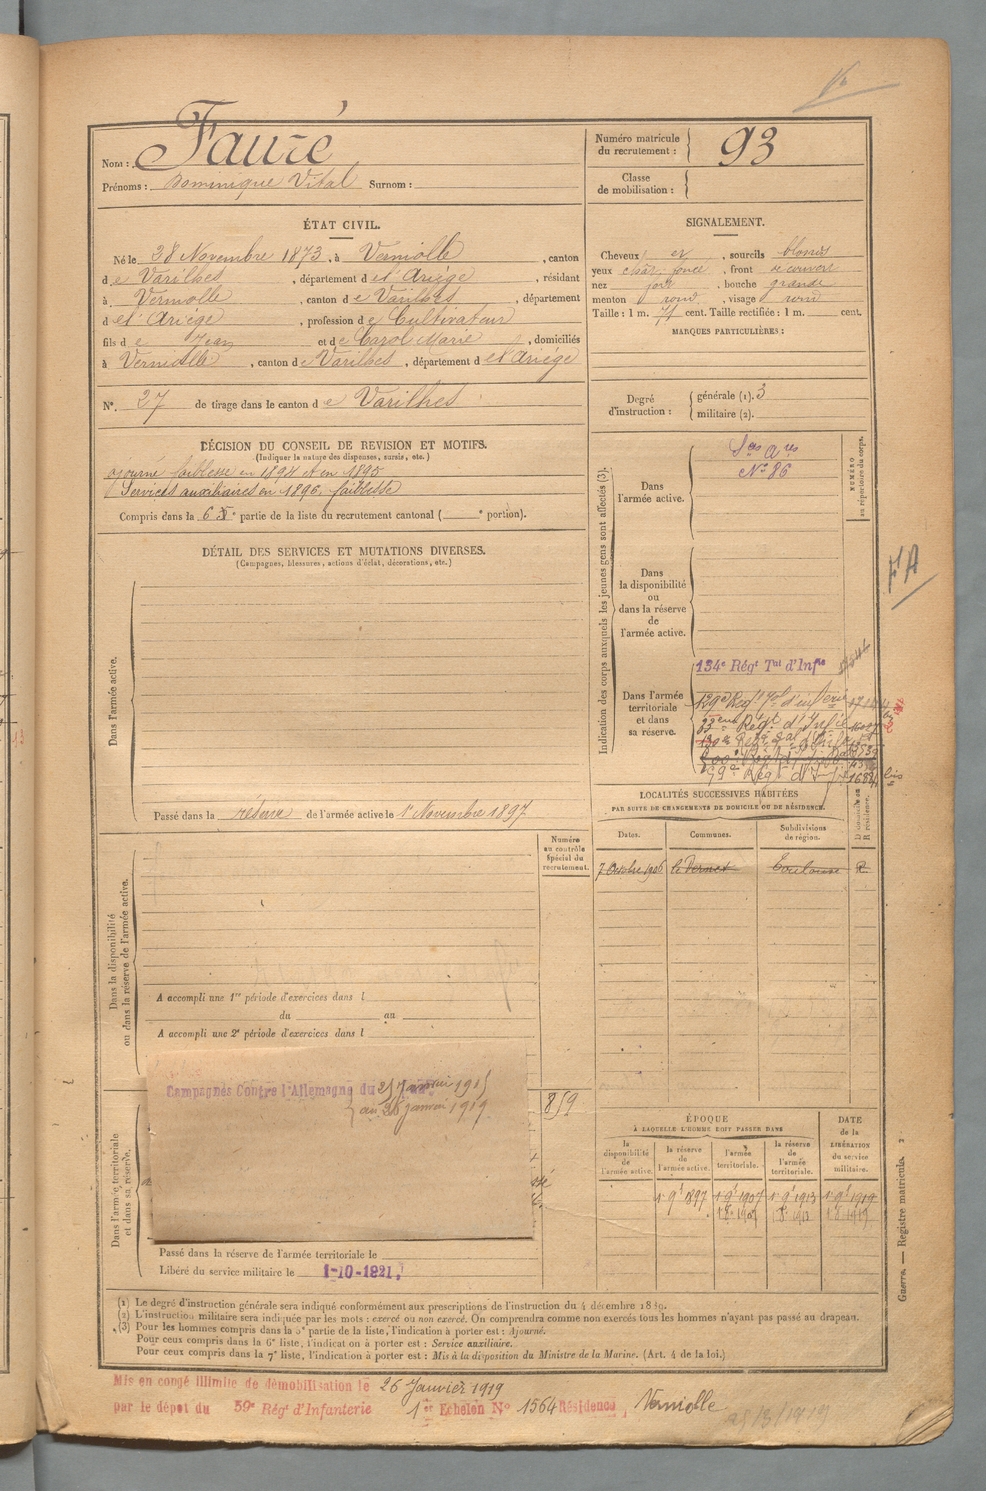 Nom : Fauré
Prénoms : Dominique Vital Surnom :
Numéro matricule du recrutement : 93
Classe de mobilisation :
ÉTAT CIVIL.
Né le 28 Novembre 1873, à Verniolle, canton
de Varilhes, département d el' Ariège, résidant
à Verniolle, canton de Varilhes, département
d el' Ariège, profession de Cultivateur
fils de Jean et de Carol Marie, domiciliés
à Verniolle, canton de Varilhes, département d el' Ariège
N° 27 de tirage dans le canton de Varilhes
SIGNALEMENT.
Cheveux et, sourcils blonds
yeux clair foncé, front découvert
nez fort, bouche grande
menton rond, visage rond
Taille : 1 m. 71 cent. Taille rectifiée : 1 m. cent.
MARQUES PARTICULIÈRES :
Degré d'instruction : générale (1). 3
militaire (2).
DÉCISION DU CONSEIL DE REVISION ET MOTIFS.
(Indiquer la nature des dispenses, sursis, etc.)
ajourné faiblesse en 1894 et en 1895
Services auxiliaires en 1896. faiblesse
Compris dans la 6e partie de la liste du recrutement cantonal ( e portion).
DÉTAIL DES SERVICES ET MUTATIONS DIVERSES.
(Campagnes, blessures, actions d'éclat, décorations, etc.)
Dans l'armée active.
Passé dans la réserve de l'armée active le 1er Novembre 1897
Indication des corps auxquels les jeunes gens sont affectés (3).
NUMÉRO au répertoire du corps.
Dans l'armée active.
Ses Ares
N° 86
Dans la disponibilité ou dans la réserve de l'armée active.
Dans l'armée territoriale et dans sa réserve.
134e Régt Tal d'Infie
129e Régt Tal d'infterie
Régt d'Infie
FA
LOCALITÉS SUCCESSIVES HABITÉES
PAR SUITE DE CHANGEMENTS DE DOMICILE OU DE RÉSIDENCE.
Dates. Communes. Subdivisions de région. D domicile ou R résidence.
7 Octobre 1906 le Vernet Toulouse R
Numéro au contrôle spécial du recrutement.
Dans la disponibilité ou dans la réserve de l'armée active.
A accompli une 1re période d'exercices dans l
du au
A accompli une 2e période d'exercices dans l
Campagnes Contre l'Allemagne du
au 26 janvier 1919
859
Dans l'armée territoriale et dans sa réserve.
Passé dans la réserve de l'armée territoriale le
Libéré du service militaire le 1-10-1921.
ÉPOQUE
A LAQUELLE L'HOMME DOIT PASSER DANS
DATE de la LIBÉRATION du service militaire.
la disponibilité de l'armée active. la réserve de l'armée active. l'armée territoriale. la réserve de l'armée territoriale.
1er 9bre 1897 1er 9bre 1907 1er 9bre 1913 1er 9bre 1919
(1) Le degré d'instruction générale sera indiqué conformément aux prescriptions de l'instruction du 4 décembre 1889.
(2) L'instruction militaire sera indiquée par les mots : exercé ou non exercé. On comprendra comme non exercés tous les hommes n'ayant pas passé au drapeau.
(3) Pour les hommes compris dans la 5e partie de la liste, l'indication à porter est : Ajourné.
Pour ceux compris dans la 6e liste, l'indication à porter est : Service auxiliaire.
Pour ceux compris dans la 7e liste, l'indication à porter est : Mis à la disposition du Ministre de la Marine. (Art. 4 de la loi.)
Guerre. — Registre matricule.
Mis en congé illimité de démobilisation le 26 Janvier 1919
par le dépôt du 59e Régt d'Infanterie 1er Echelon N° 1564 Résidence, Verniolle
25/3/1919